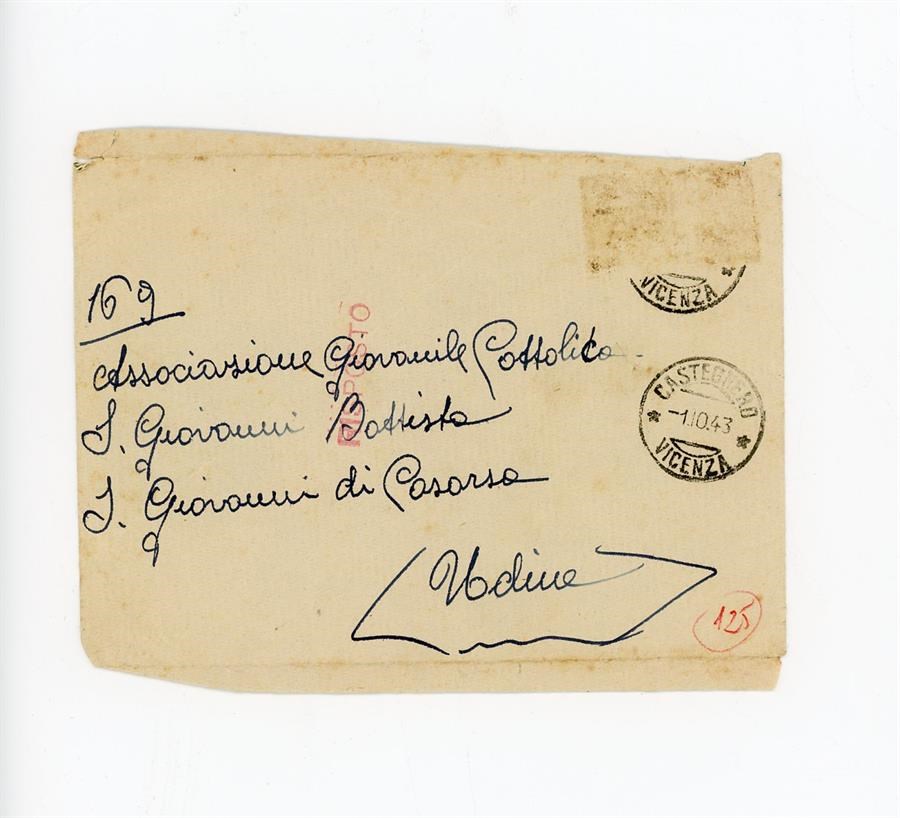 VICENZA
169
RISPOSTO
Associazione Giovanile Cattolica
S. Giovanni Battista
S. Giovanni di Casarsa
Udine
CASTEGNERO
-1.10.43
VICENZA
125